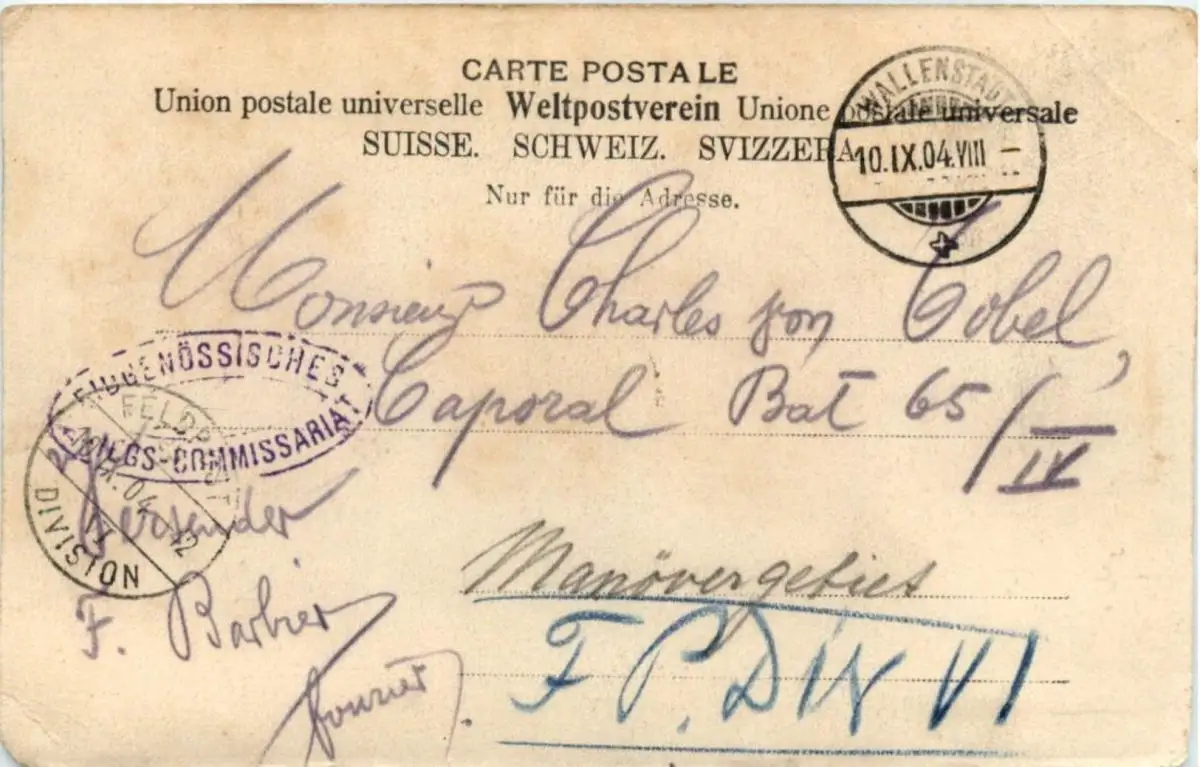 CARTE POSTALE
Union postale universelle Weltpostverein Unione postale universale
SUISSE. SCHWEIZ. SVIZZERA
Nur für die Adresse.
WALLENSTADT
10.IX.04.VIII –
Monsieur Charles von Tobel,
Caporal Bat 65/IV
EIDGENÖSSISCHES
KRIEGS-COMMISSARIAT
FELDPOST
IX.04 12
DIVISION
Versender
F. Barbier
fourier.
Manövergebiet
F. P. DIV VI